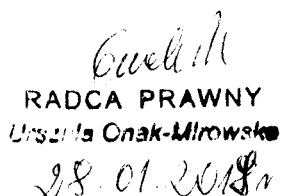 RADCA PRAWNY
Urszula Onak-Mirowska
28.01.2018r